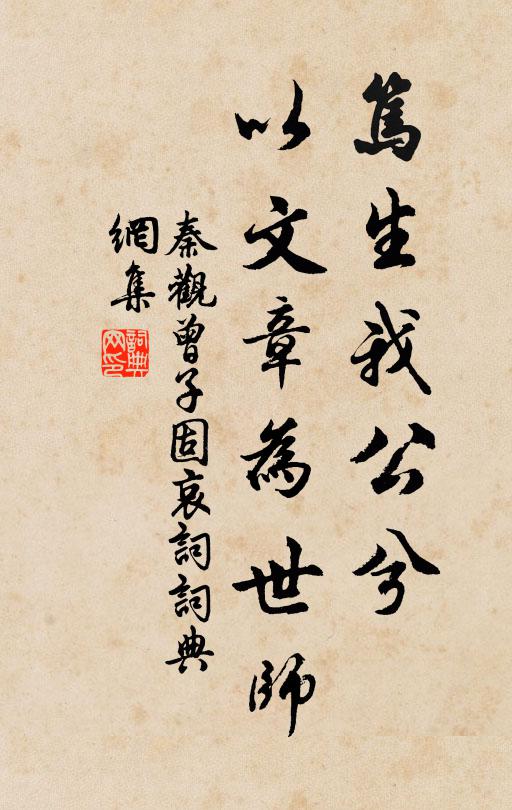 篤生我公兮
以文章為世師
秦觀曾子固哀詞詞典
網集
詞典
网印